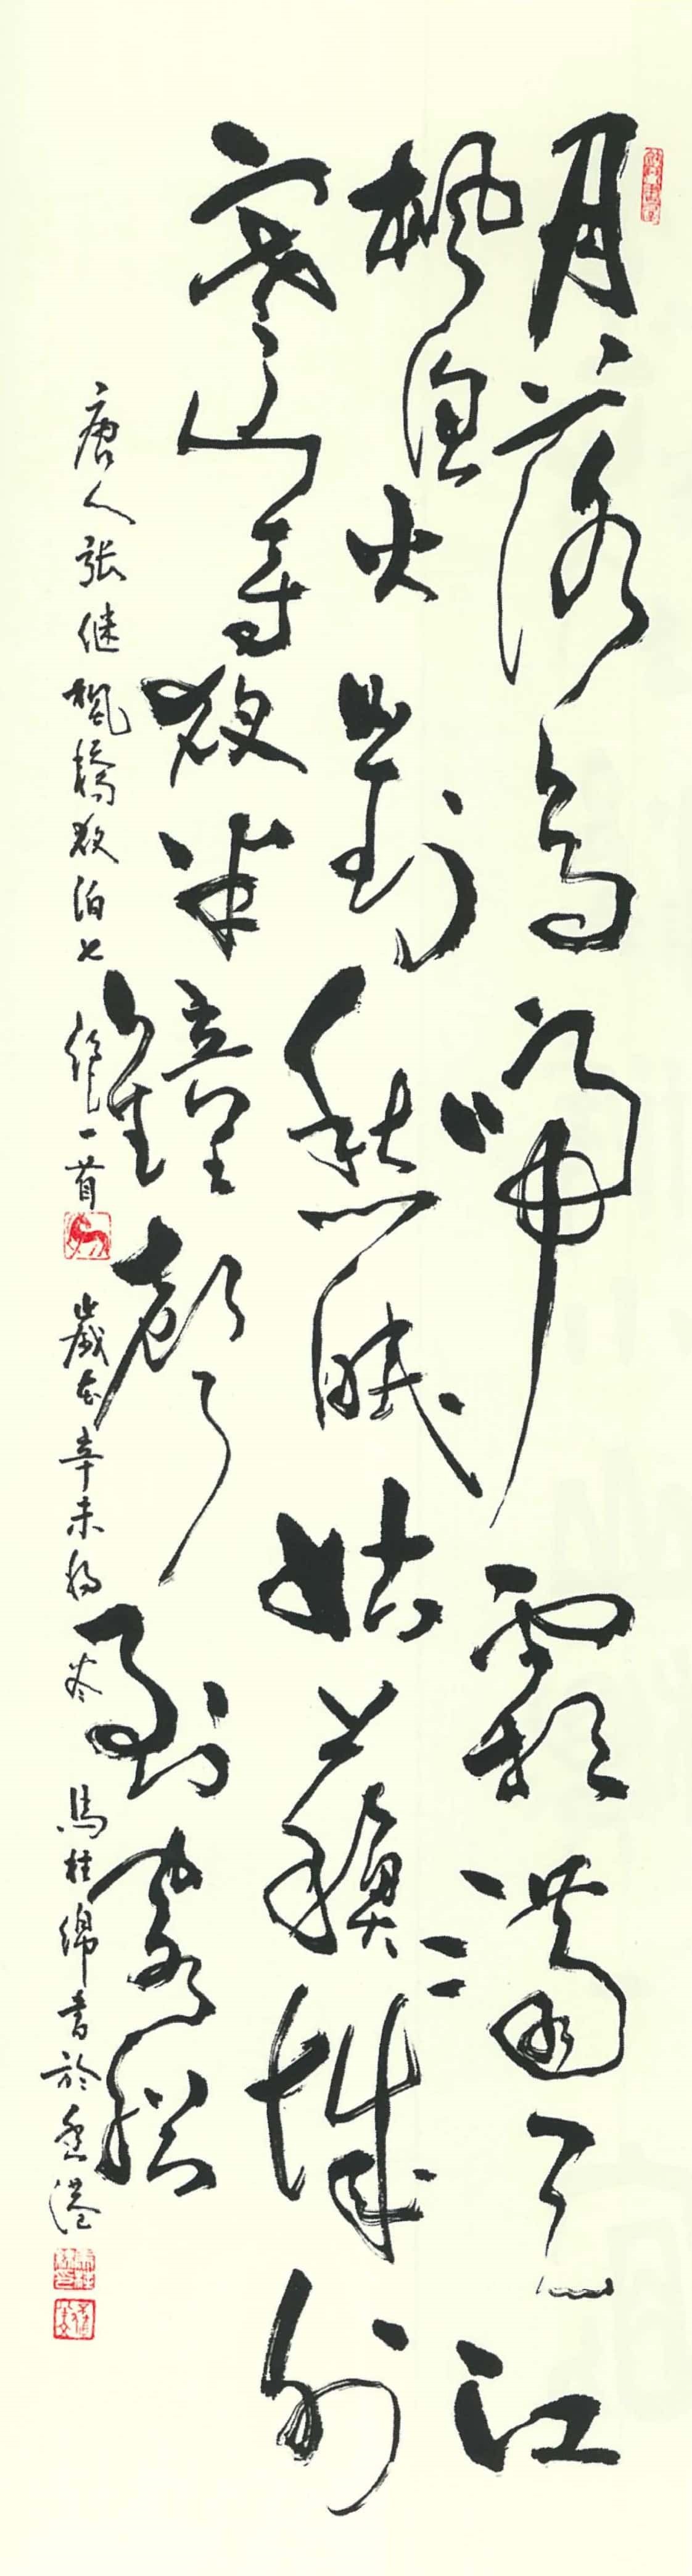 月落烏啼霜滿天江
楓漁火對愁眠姑蘇城外
寒山寺夜半鐘聲到客船
唐人張继楓橋夜泊七绝一首 歲在辛未初冬 馬桂綿書於香港